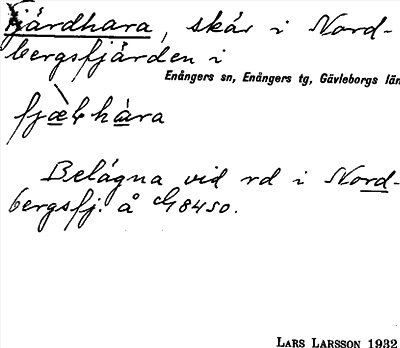 Fjärdhara, skär i Nord-
bergsfjärden i
Enångers sn, Enångers tg, Gävleborgs län
fjæ̱ɽha̱ra
Belägna vid rd i Nord-
bergsfj. å G8450.
LARS LARSSON 1932